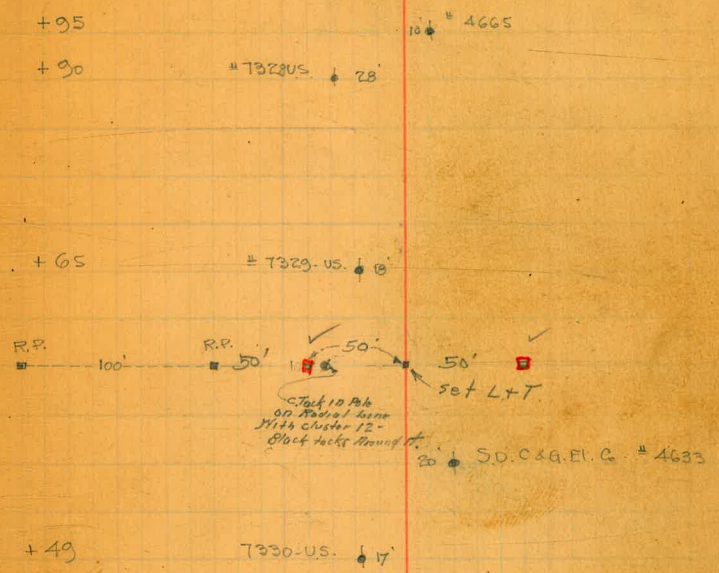 +95
10' # 4665
+90
# 7328 US. 28'
+65
# 7329-US. 18'
R.P. R.P.
100' 50' 50' 50'
set L+T.
C. Tack in Pole
on Radial Line
With cluster 12-
Black tacks Around it.
20' S.D. C & G. El. Co. # 4633
+49
7330-US. 17'